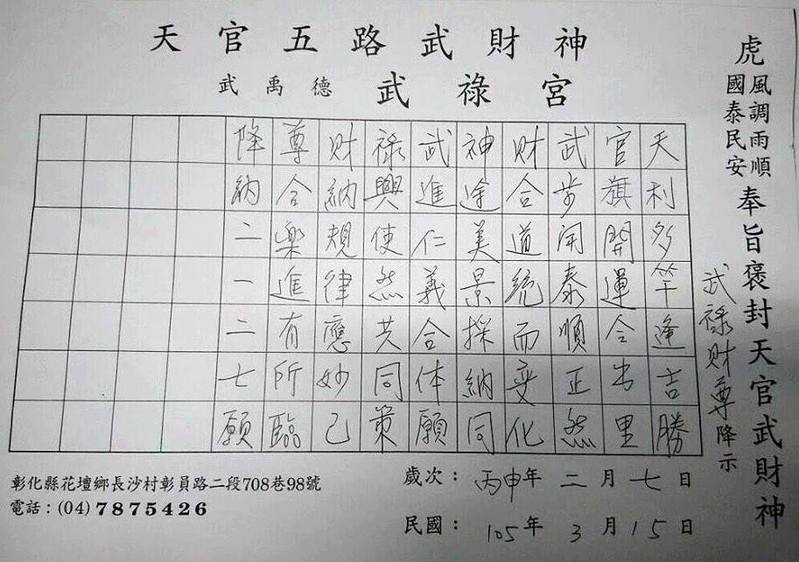 天官五路武財神
武禹德 武祿宮
虎
風調雨順
國泰民安
奉旨褒封天官武財神
武祿財尊降示
天利多竿逢吉勝
官旗開運合出里
武步泰順正然
財合道統而变化
神途美景採納同
武進仁義合体願
祿興使然共同策
財納規律應妙己
尊合樂進有所臨
降納二一二七願
歲次：丙申年 二月七日
民國：105年 3月15日
彰化縣花壇鄉長沙村彰員路二段708巷98號
電話：(04) 7875426